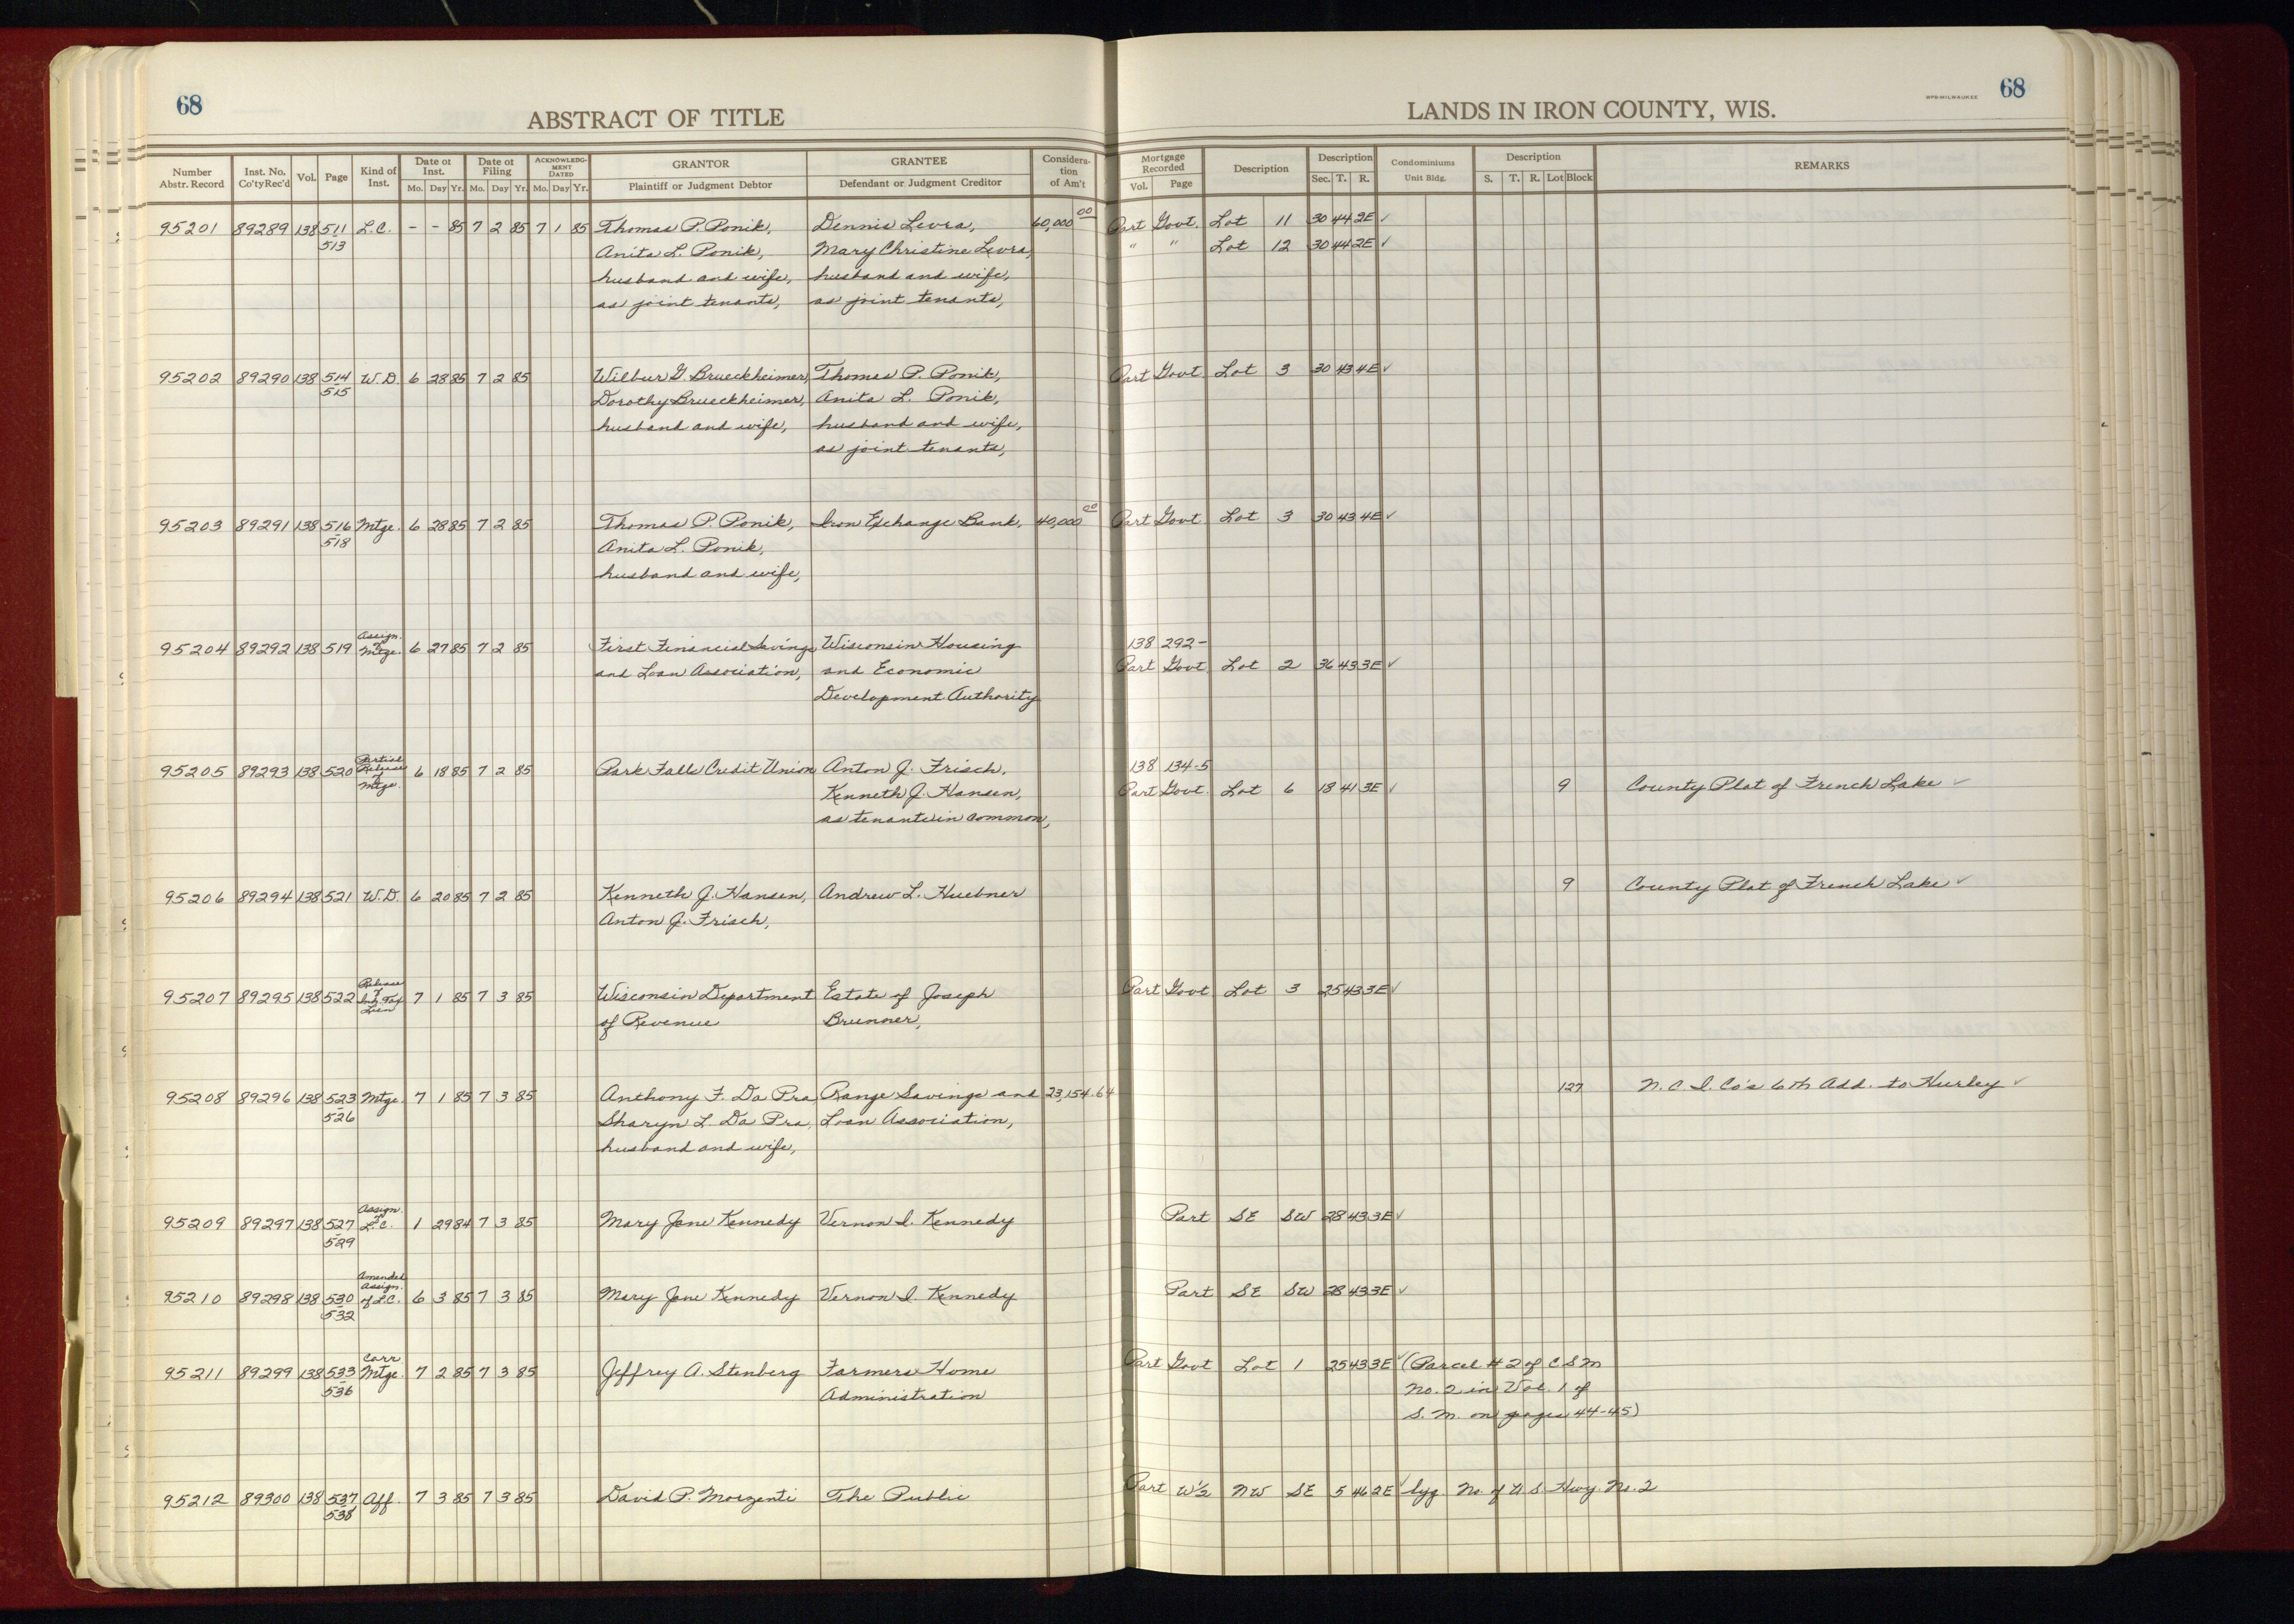 68
ABSTRACT OF TITLE
LANDS IN IRON COUNTY, WIS.
WPB-MILWAUKEE
68
Number Abstr. Record | Inst. No. Co'ty Rec'd | Vol. | Page | Kind of Inst. | Date of Inst. Mo. Day Yr. | Date of Filing Mo. Day Yr. | ACKNOWLEDGMENT DATED Mo. Day Yr. | GRANTOR Plaintiff or Judgment Debtor | GRANTEE Defendant or Judgment Creditor | Consideration of Am't | Mortgage Recorded Vol. Page | Description | Description Sec. T. R. | Condominiums Unit Bldg. | Description S. T. R. Lot Block | REMARKS
95201 89289 138 511 L.C. - - 85 7 2 85 7 1 85 Thomas P. Ponik, Dennis Levra, 60,000 00 Part Govt. Lot 11 30 44 2E ✓
513 Anita L. Ponik, Mary Christine Levra, " " Lot 12 30 44 2E ✓
husband and wife, husband and wife,
as joint tenants, as joint tenants,
95202 89290 138 514 W.D. 6 28 85 7 2 85 Wilbur G. Brueckheimer, Thomas P. Ponik, Part Govt Lot 3 30 43 4E ✓
515 Dorothy Brueckheimer, Anita L. Ponik,
husband and wife, husband and wife,
as joint tenants,
95203 89291 138 516 Mtge. 6 28 85 7 2 85 Thomas P. Ponik, Iron Exchange Bank, 40,000 00 Part Govt Lot 3 30 43 4E ✓
518 Anita L. Ponik,
husband and wife,
95204 89292 138 519 Assign. of Mtge. 6 27 85 7 2 85 First Financial Savings Wisconsin Housing 138 292-
and Loan Association, and Economic Part Govt. Lot 2 36 43 3E ✓
Development Authority
95205 89293 138 520 Partial Release of Mtge. 6 18 85 7 2 85 Park Falls Credit Union Anton J. Frisch, 138 134-5
Kenneth J. Hansen, Part Govt. Lot 6 18 41 3E ✓ 9 County Plat of French Lake ✓
as tenants in common,
95206 89294 138 521 W.D. 6 20 85 7 2 85 Kenneth J. Hansen, Andrew L. Huebner 9 County Plat of French Lake ✓
Anton J. Frisch,
95207 89295 138 522 Release of Inh. Tax Lien 7 1 85 7 3 85 Wisconsin Department Estate of Joseph Part Govt Lot 3 25 43 3E ✓
of Revenue Brunner,
95208 89296 138 523 Mtge. 7 1 85 7 3 85 Anthony F. Da Pra Range Savings and 23,154.64 127 N. C. I. Co's 6th Add. to Hurley ✓
526 Sharyn L. Da Pra, Loan Association,
husband and wife,
95209 89297 138 527 Assign. of L.C. 1 29 84 7 3 85 Mary Jane Kennedy Vernon I. Kennedy Part SE SW 28 43 3E ✓
529
95210 89298 138 530 Amended Assign. of L.C. 6 3 85 7 3 85 Mary Jane Kennedy Vernon I. Kennedy Part SE SW 28 43 3E ✓
532
95211 89299 138 533 Corr. Mtge. 7 2 85 7 3 85 Jeffrey A. Stenberg Farmers Home Part Govt Lot 1 25 43 3E ✓ (Parcel #2 of C S M
536 Administration No. 2 in Vol. 1 of
S. M. on pages 44-45)
95212 89300 138 537 Aff. 7 3 85 7 3 85 David P. Morzenti The Public Part W½ NW SE 5 46 2E ✓ lyg. No. of U.S. Hwy. No. 2
538